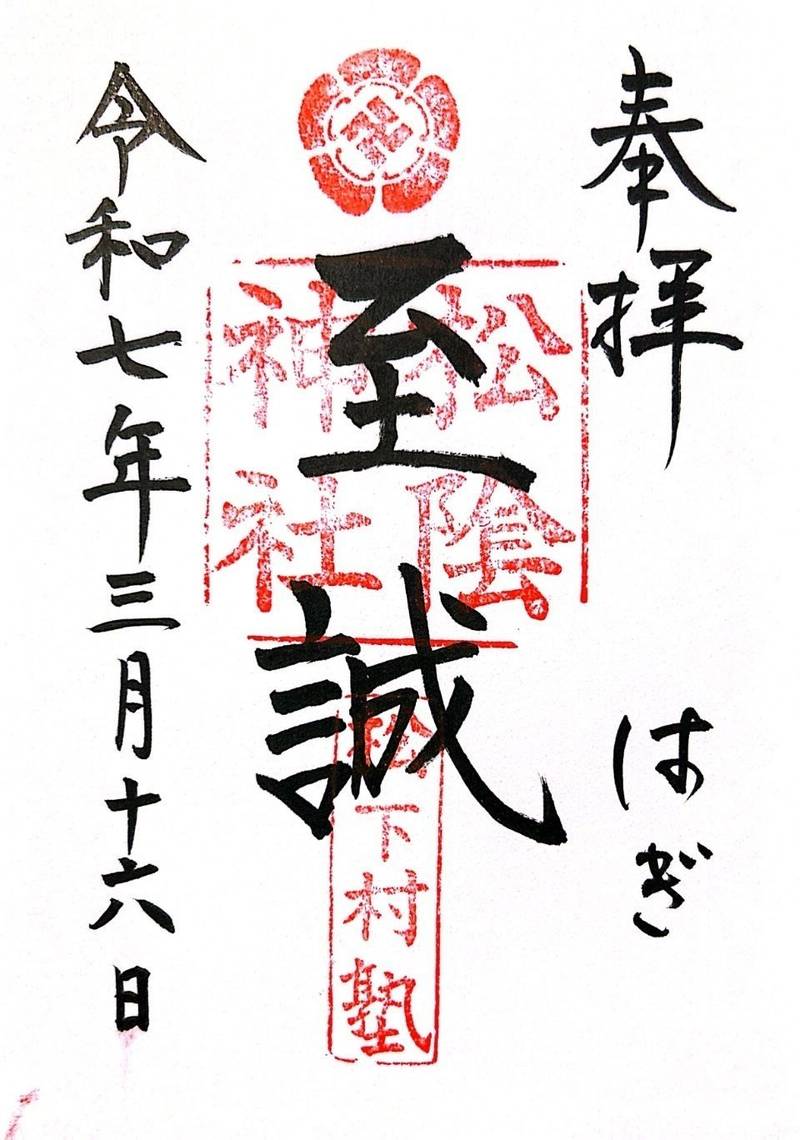 奉拝
はぎ
至誠
松陰
神社
松下村塾
令和七年三月十六日